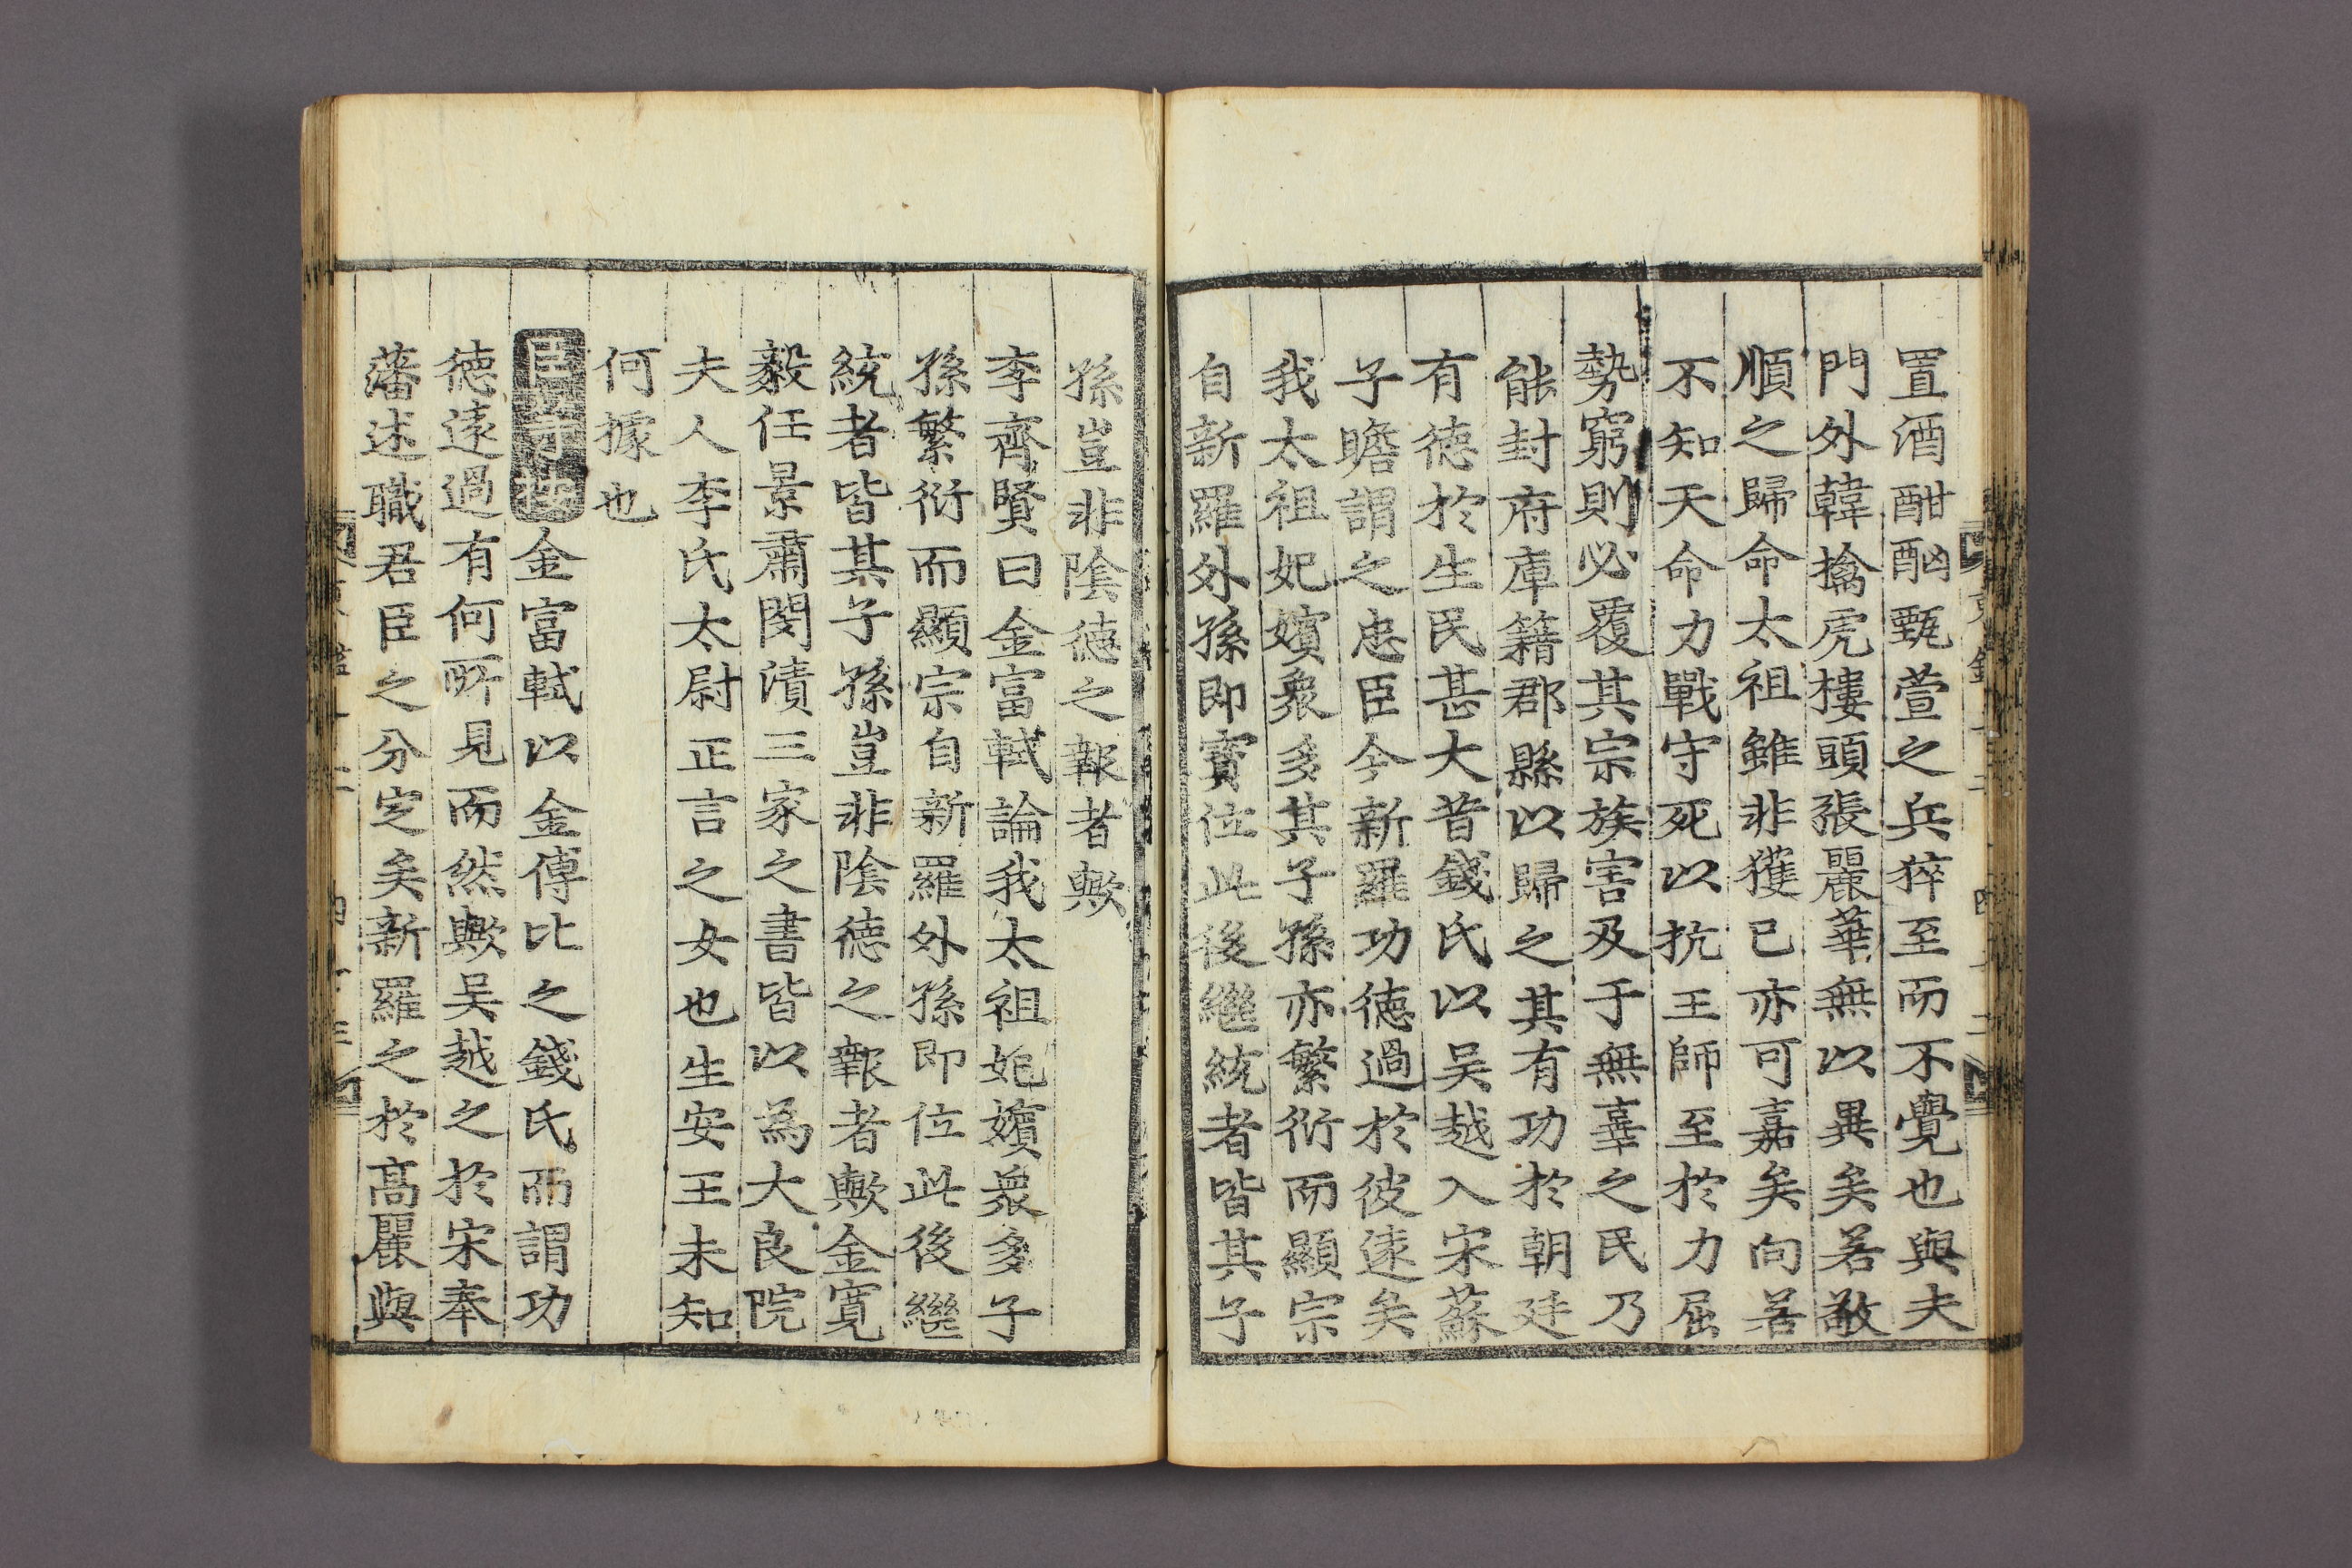 置酒酣酗甄萱之兵猝至而不覺也與夫
門外韓擒虎樓頭張麗華無以異矣若敬
順之歸命太祖雖非獲已亦可嘉矣向若
不知天命力戰守死以抗王師至於力屈
勢窮則必覆其宗族害及于無辜之民乃
能封府庫籍郡縣以歸之其有功於朝廷
有德於生民甚大昔錢氏以吳越入宋蘇
子瞻謂之忠臣今新羅功德過於彼遠矣
我太祖妃嬪衆多其子孫亦繁衍而顯宗
自新羅外孫即寶位此後繼統者皆其子
孫豈非陰德之報者歟
李齊賢曰金富軾論我太祖妃嬪衆多子
孫繁衍而顯宗自新羅外孫即位此後繼
統者皆其子孫豈非陰德之報者歟金寬
毅任景肅閔漬三家之書皆以為大良院
夫人李氏太尉正言之女也生安王未知
何據也
金富軾以金傅比之錢氏而謂功
德遠過有何所見而然歟吳越之於宋奉
藩述職君臣之分定矣新羅之於高麗與